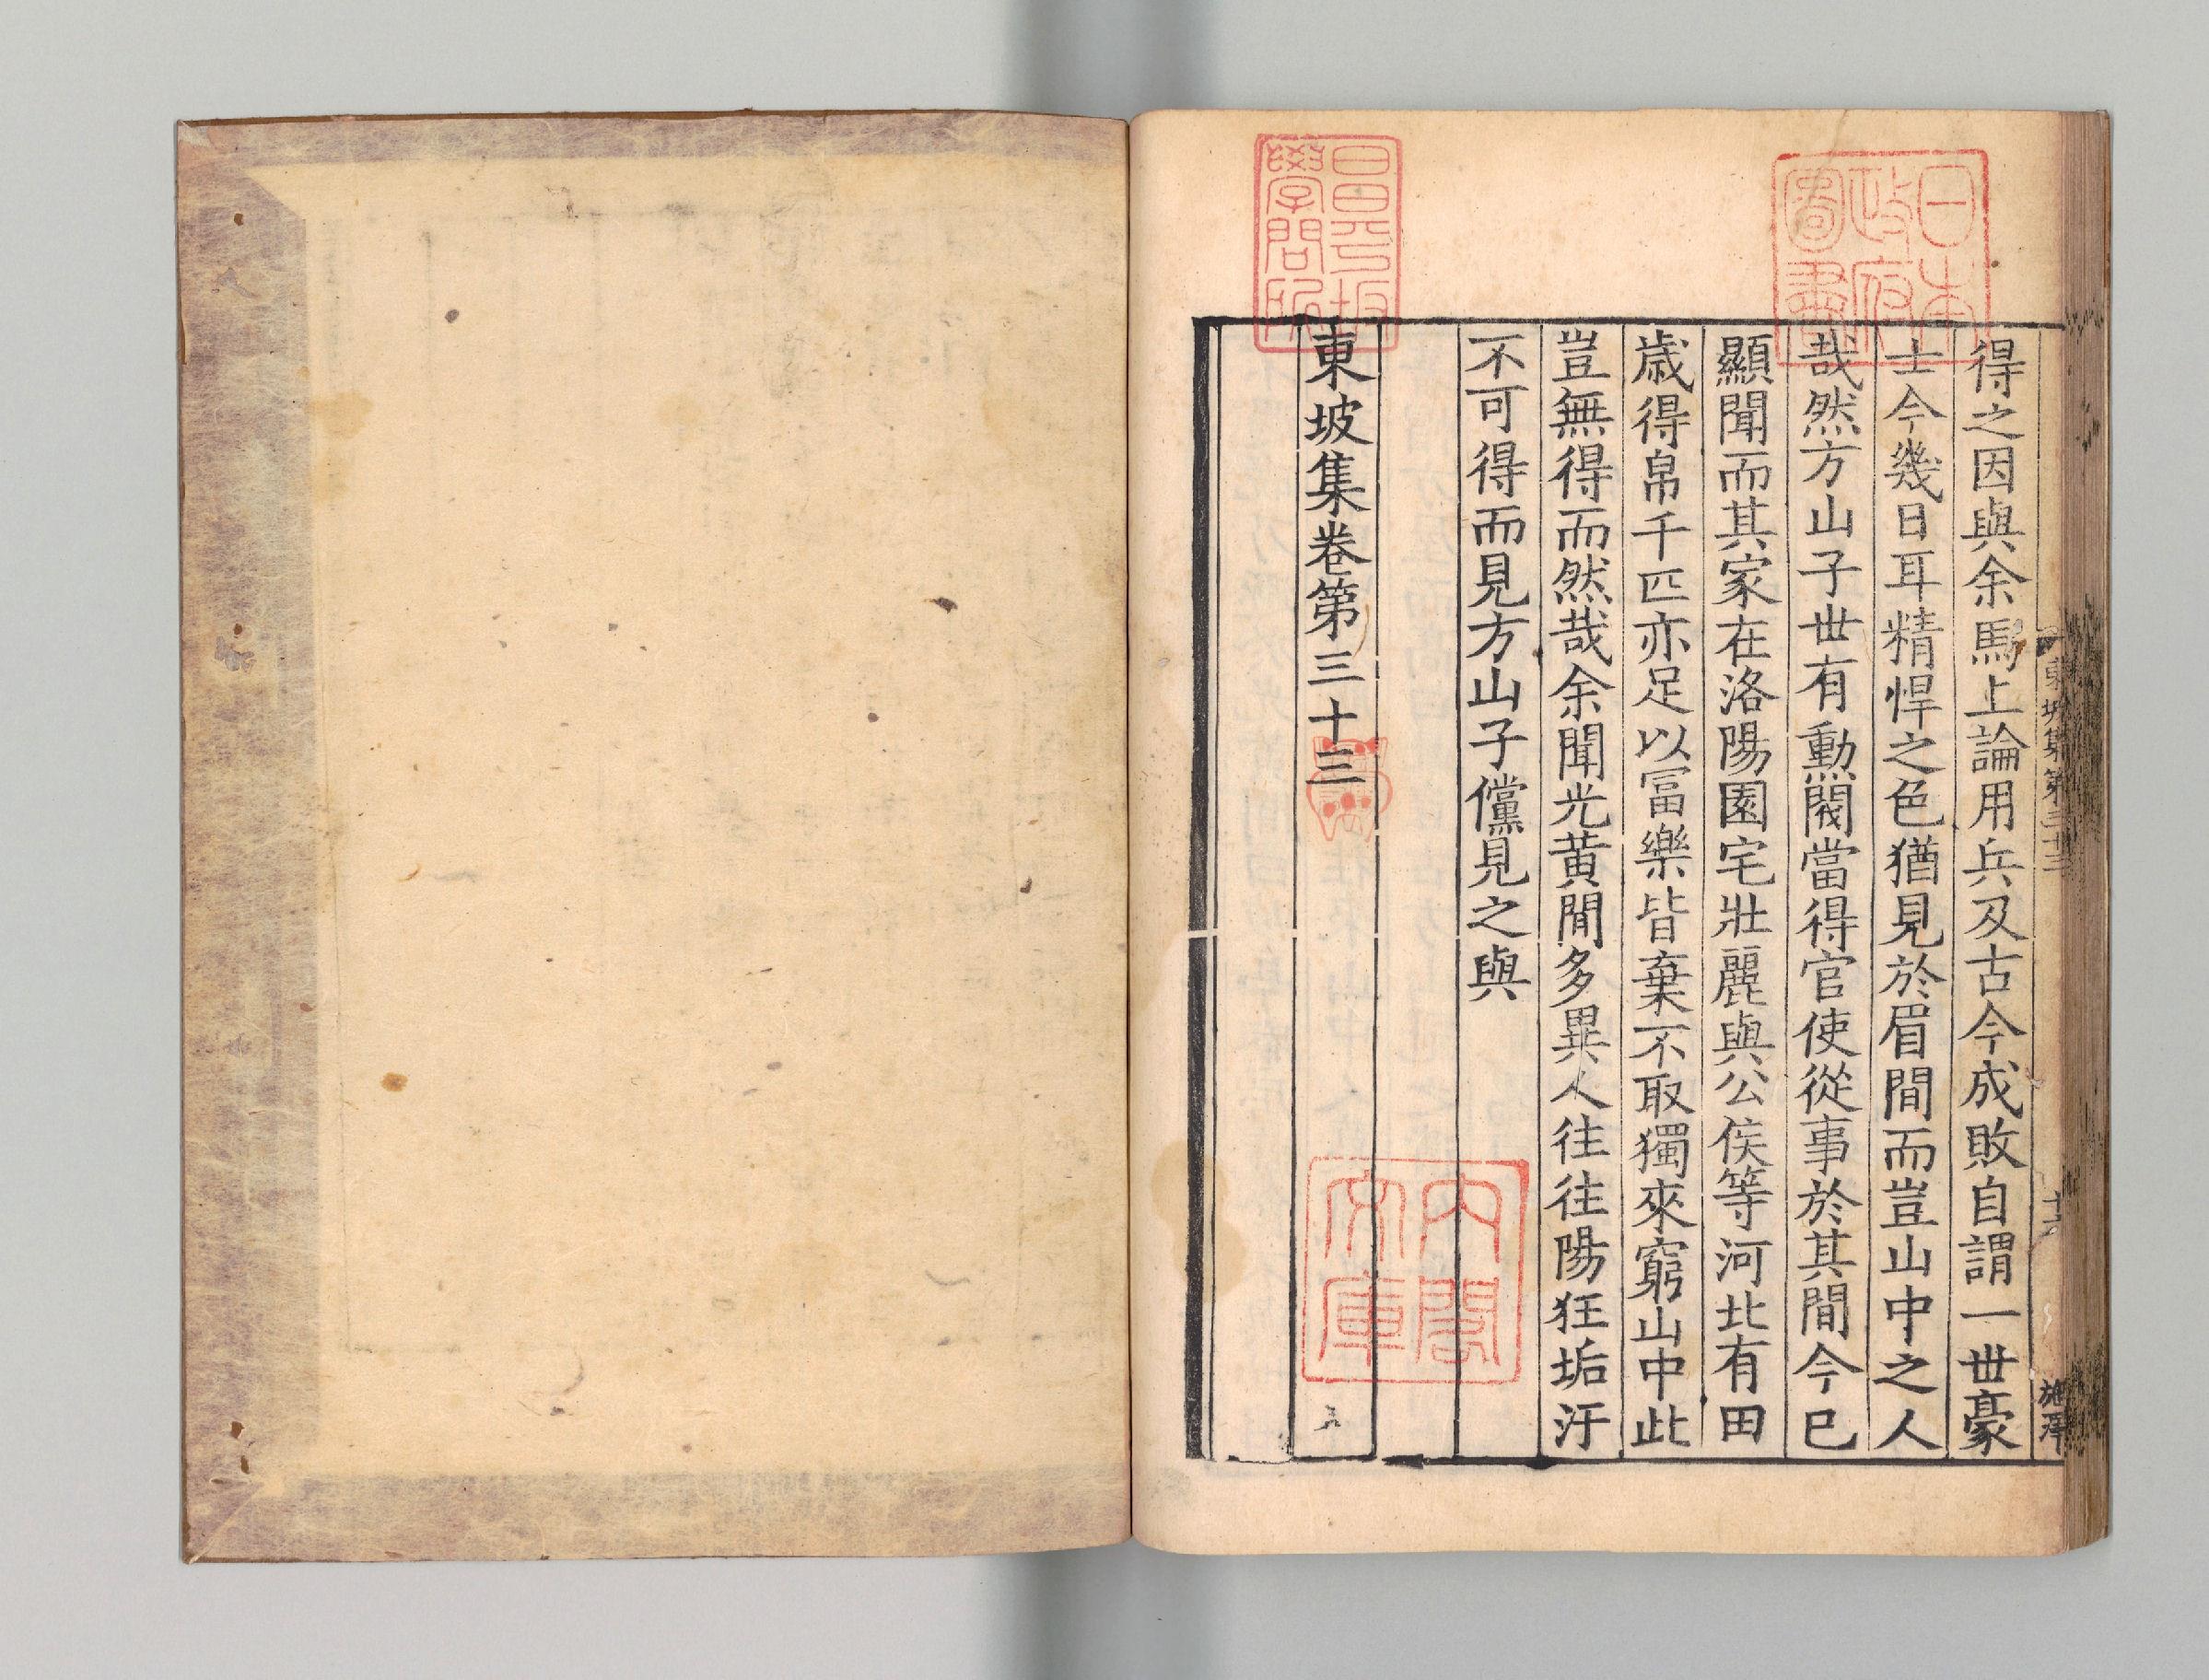 得之因與余馬上論用兵及古今成敗自謂一世豪
士今幾日耳精悍之色猶見於眉間而豈山中之人
哉然方山子世有勳閥當得官使從事於其間今已
顯聞而其家在洛陽園宅壯麗與公侯等河北有田
歳得帛千匹亦足以冨樂皆棄不取獨來窮山中此
豈無得而然哉余聞光黄間多異人往往陽狂垢汙
不可得而見方山子儻見之與
東坡集卷第三十三
日本
政府
圖書
昌平坂
學問所
內閣
文庫
東坡集第三十三